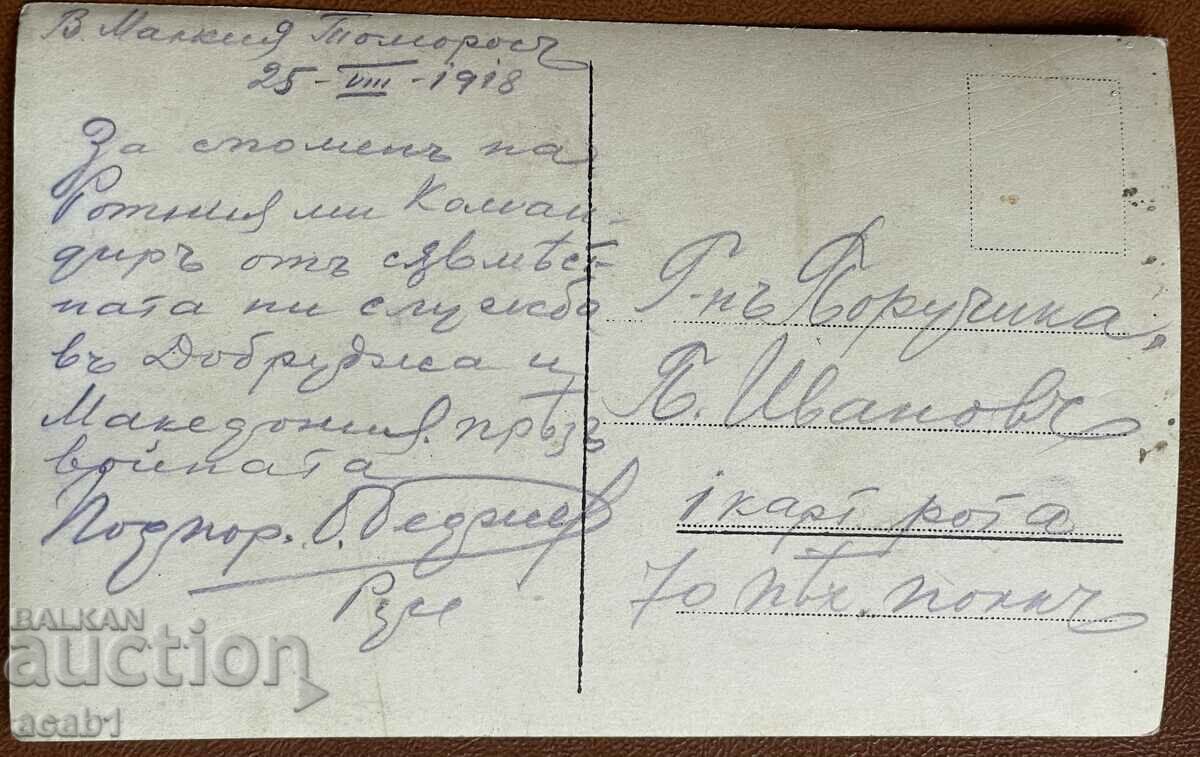 В. Малкия Томоросъ
25-VIII-1918
За споменъ на
Ротния ми Коман-
диръ отъ съвмѣст-
ната ни служба
въ Добруджа и
Македония прѣзъ
войната
Подпор.
Русе
Г-нъ Поручика
П. Ивановъ
1 карт. рота
70 пѣх. полкъ
BALKAN
auction
acab1